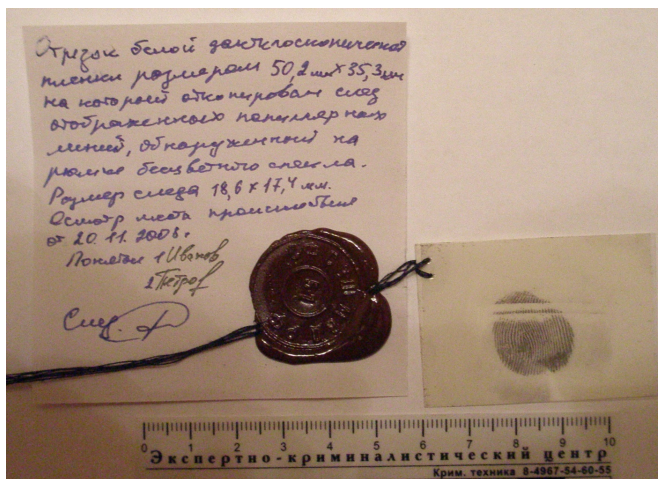 Отрезок белой дактилоскопической
пленки размером 50,2 мм х 35,3 мм
на которой откопирован след
отображенного папиллярных
линий, обнаруженный на
рюмке бесцветного стекла.
Размер следа 18,6 х 17,4 мм.
Осмотр места происшествия
от 20.11.2008 г
Понятые 1 Иванов
2 Петров
След.
0 1 2 3 4 5 6 7 8 9 10
Экспертно-криминалистический центр
Крим. техника 8-4967-54-60-55